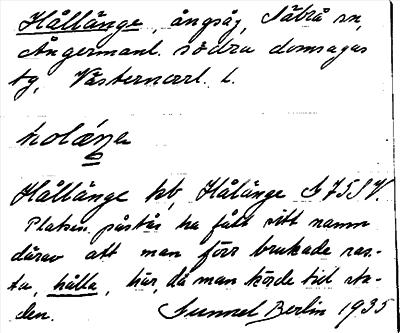 Hållänge, ångsåg, Säbrå sn,
Ångermanl. södra domsagas
tg, Västernorrl. l.
holáṉa
Hållänge kb, Hålänge G 75 SV.
Platsen påstås ha fått sitt namn
därav att man förr brukade ras-
ta, hålla, här, då man körde till sta-
den. Gunnel Berlin 1935